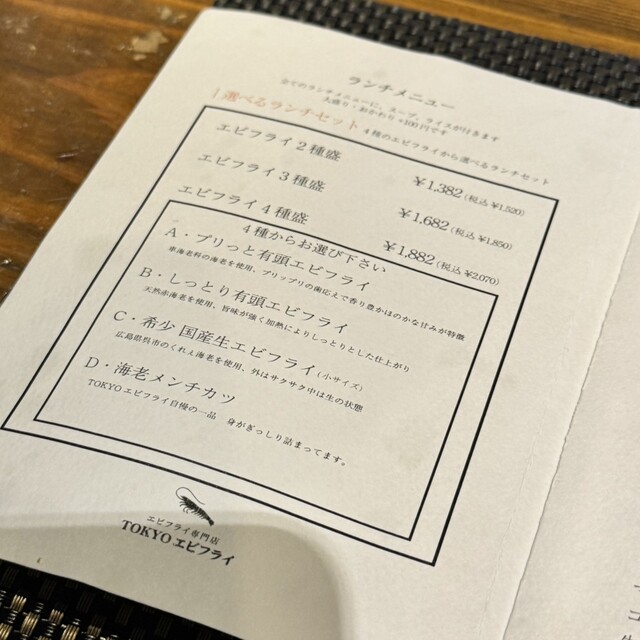 ランチメニュー
全てのランチメニューに、スープ、ライスが付きます
大盛り・おかわり+100円です
選べるランチセット 4種のエビフライから選べるランチセット
エビフライ2種盛 ¥1,382(税込¥1,520)
エビフライ3種盛 ¥1,682(税込¥1,850)
エビフライ4種盛 ¥1,882(税込¥2,070)
4種からお選び下さい
A・プリっと有頭エビフライ
車海老科の海老を使用、プリップリの歯応えで香り豊かほのかな甘みが特徴
B・しっとり有頭エビフライ
天然赤海老を使用、旨味が強く加熱によりしっとりとした仕上がり
C・希少 国産生エビフライ(小サイズ)
広島県呉市のくれぇ海老を使用、外はサクサク中は生の状態
D・海老メンチカツ
TOKYOエビフライ自慢の一品 身がぎっしり詰まってます。
エビフライ専門店
TOKYO エビフライ